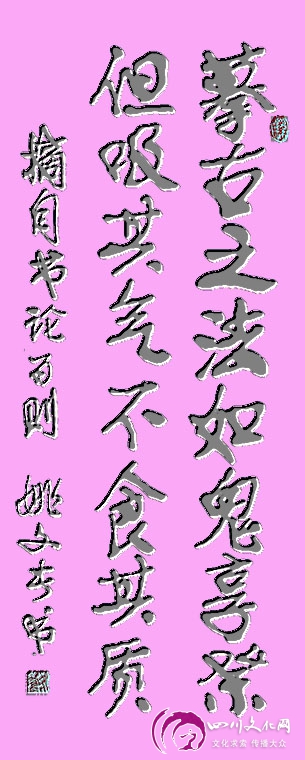 摹古之法如鬼享祭
但吸其气不食其质
摘自书论百则 姚文奎书
四川文化网
文化求索 传播大众